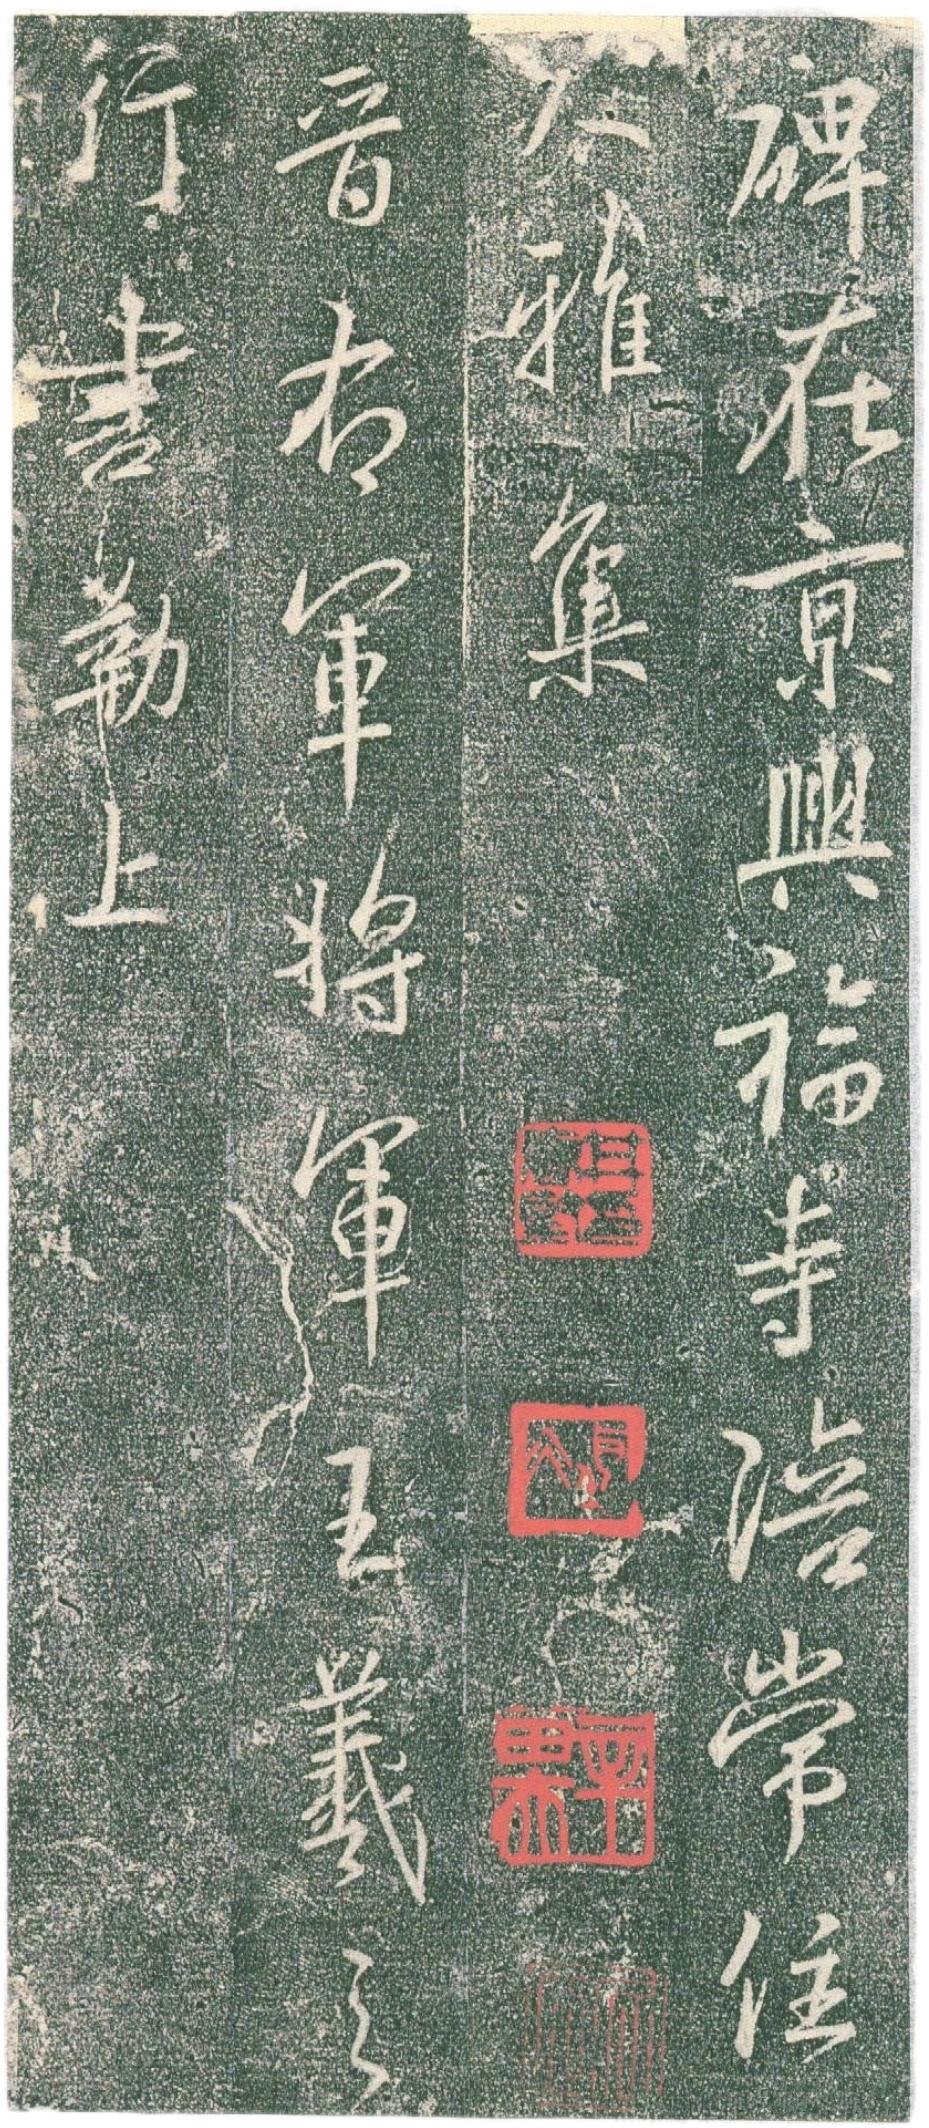 碑在京興福寺陪常住
人雅集
晉右軍將軍王羲之
行書勒上